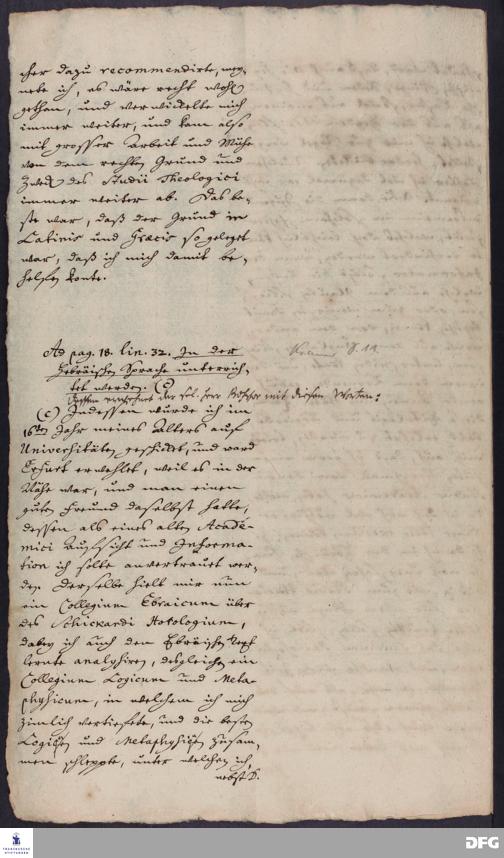 cher dazu recommendirte, mey-
nete ich, es wäre recht wohl
gethan, und verwickelte mich
immer weiter, und kam also
mit grosser Arbeit und Mühe
von dem rechten Grund und
Zweck des Studii Theologici
immer weiter ab. Das be-
ste war, daß der Grund in
Latinis und Græcis so geleget
war, daß ich mich damit be-
helfen konte.
Ad pag. 18. lin. 32. In der
Hebräischen Sprache unterrich-
tet werden. (c)
mit diesen Worten:
(c) Indessen wurde ich im
16ten Jahr meines Alters auf
Universitäten geschickt, und ward
Erfurt erwehlet, weil es in der
Nähe war, und man einen
guten Freund daselbst hatte,
dessen als eines alten Acade-
mici Aufsicht und Informa-
tion ich solte anvertrauet wer-
den. Derselbe hielt mir nun
ein Collegium Ebraicum über
des Schickardi Horologium,
dabey ich auch den Ebräischen
lernte analysiren, desgleichen ein
Collegium Logicum und Meta-
physicum, in welchem ich mich
zimlich vertiefete, und die besten
Logicken und Metaphysicken zusam-
men schleppte, unter welchen ich,
nebst D.
FRANCKESCHE
STIFTUNGEN
DFG